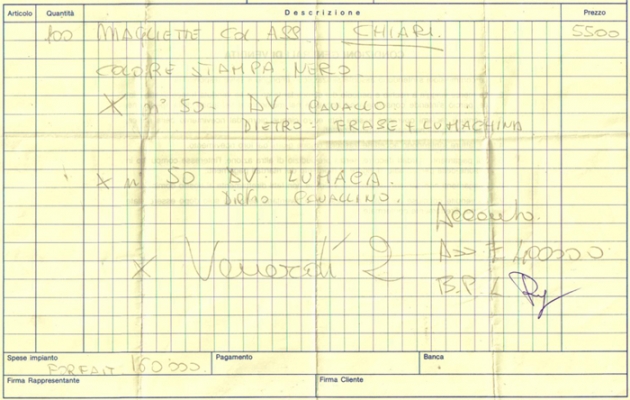 Articolo Quantità Descrizione Prezzo
100 MAGLIETTE COL ASS. CHIARI. 5500
COLORE STAMPA NERO.
X n° 50 - DV. CAVALLO.
DIETRO: FRASE + LUMACHINA
X n° 50 DV. LUMACA.
DIETRO CAVALLINO.
Acconto.
X Venerdì 2 Ass £ 400000
B.P.L
Spese impianto Pagamento Banca
FORFAIT 160.000.
Firma Rappresentante Firma Cliente